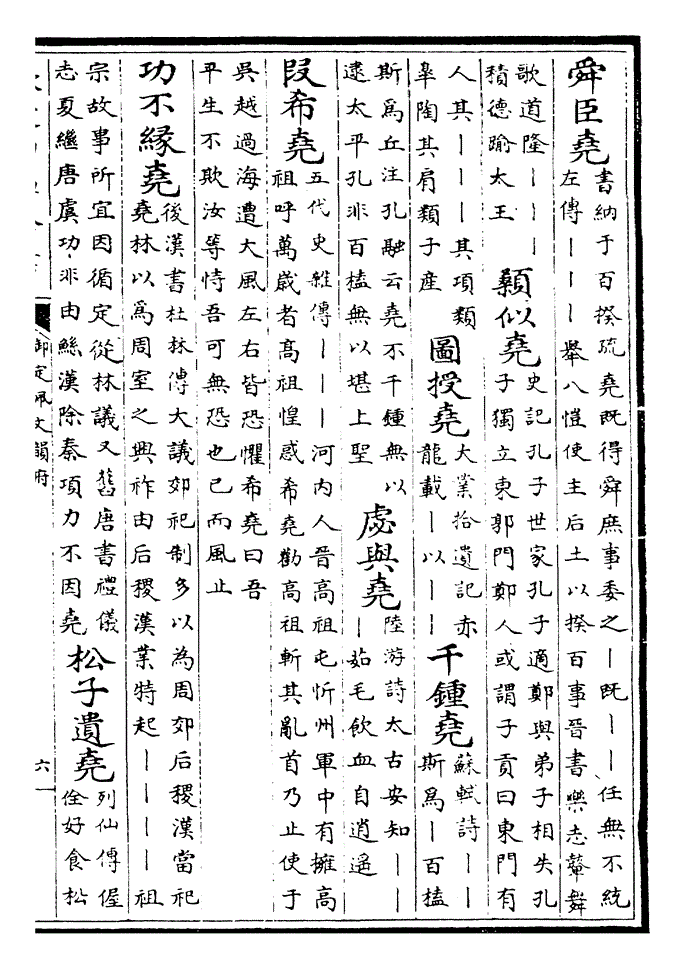 舜臣堯
書納于百揆疏堯既得舜庶事委之丨既丨丨任無不統
左傳丨丨丨舉八愷使主后土以揆百事晉書樂志鞞舞
歌道隆丨丨丨
積德踰太王
顙似堯
史記孔子世家孔子適鄭與弟子相失孔
子獨立東郭門鄭人或謂子貢曰東門有
人其丨丨丨其項類
臯陶其肩類子產
圖授堯
大業拾遺記赤
龍載丨以丨丨
千鍾堯
蘇軾詩丨丨
斯爲丨百榼
斯爲丘注孔融云堯不千鍾無以
逮太平孔非百榼無以堪上聖
處與堯
陸游詩太古安知丨丨
丨茹毛飲血自逍遥
段希堯
五代史雜傳丨丨丨河内人晉高祖屯忻州軍中有擁高
祖呼萬歲者高祖惶惑希堯勸高祖斬其亂首乃止使于
吳越過海遭大風左右皆恐懼希堯曰吾
平生不欺汝等恃吾可無恐也已而風止
功不緣堯
後漢書杜林傳大議郊祀制多以為周郊后稷漢當祀
堯林以爲周室之興祚由后稷漢業特起丨丨丨丨祖
宗故事所宜因循定從林議又舊唐書禮儀
志夏繼唐虞功非由鯀漢除秦項力不因堯
松子遺堯
列仙傳偓
佺好食松
御定佩文韻府
六一